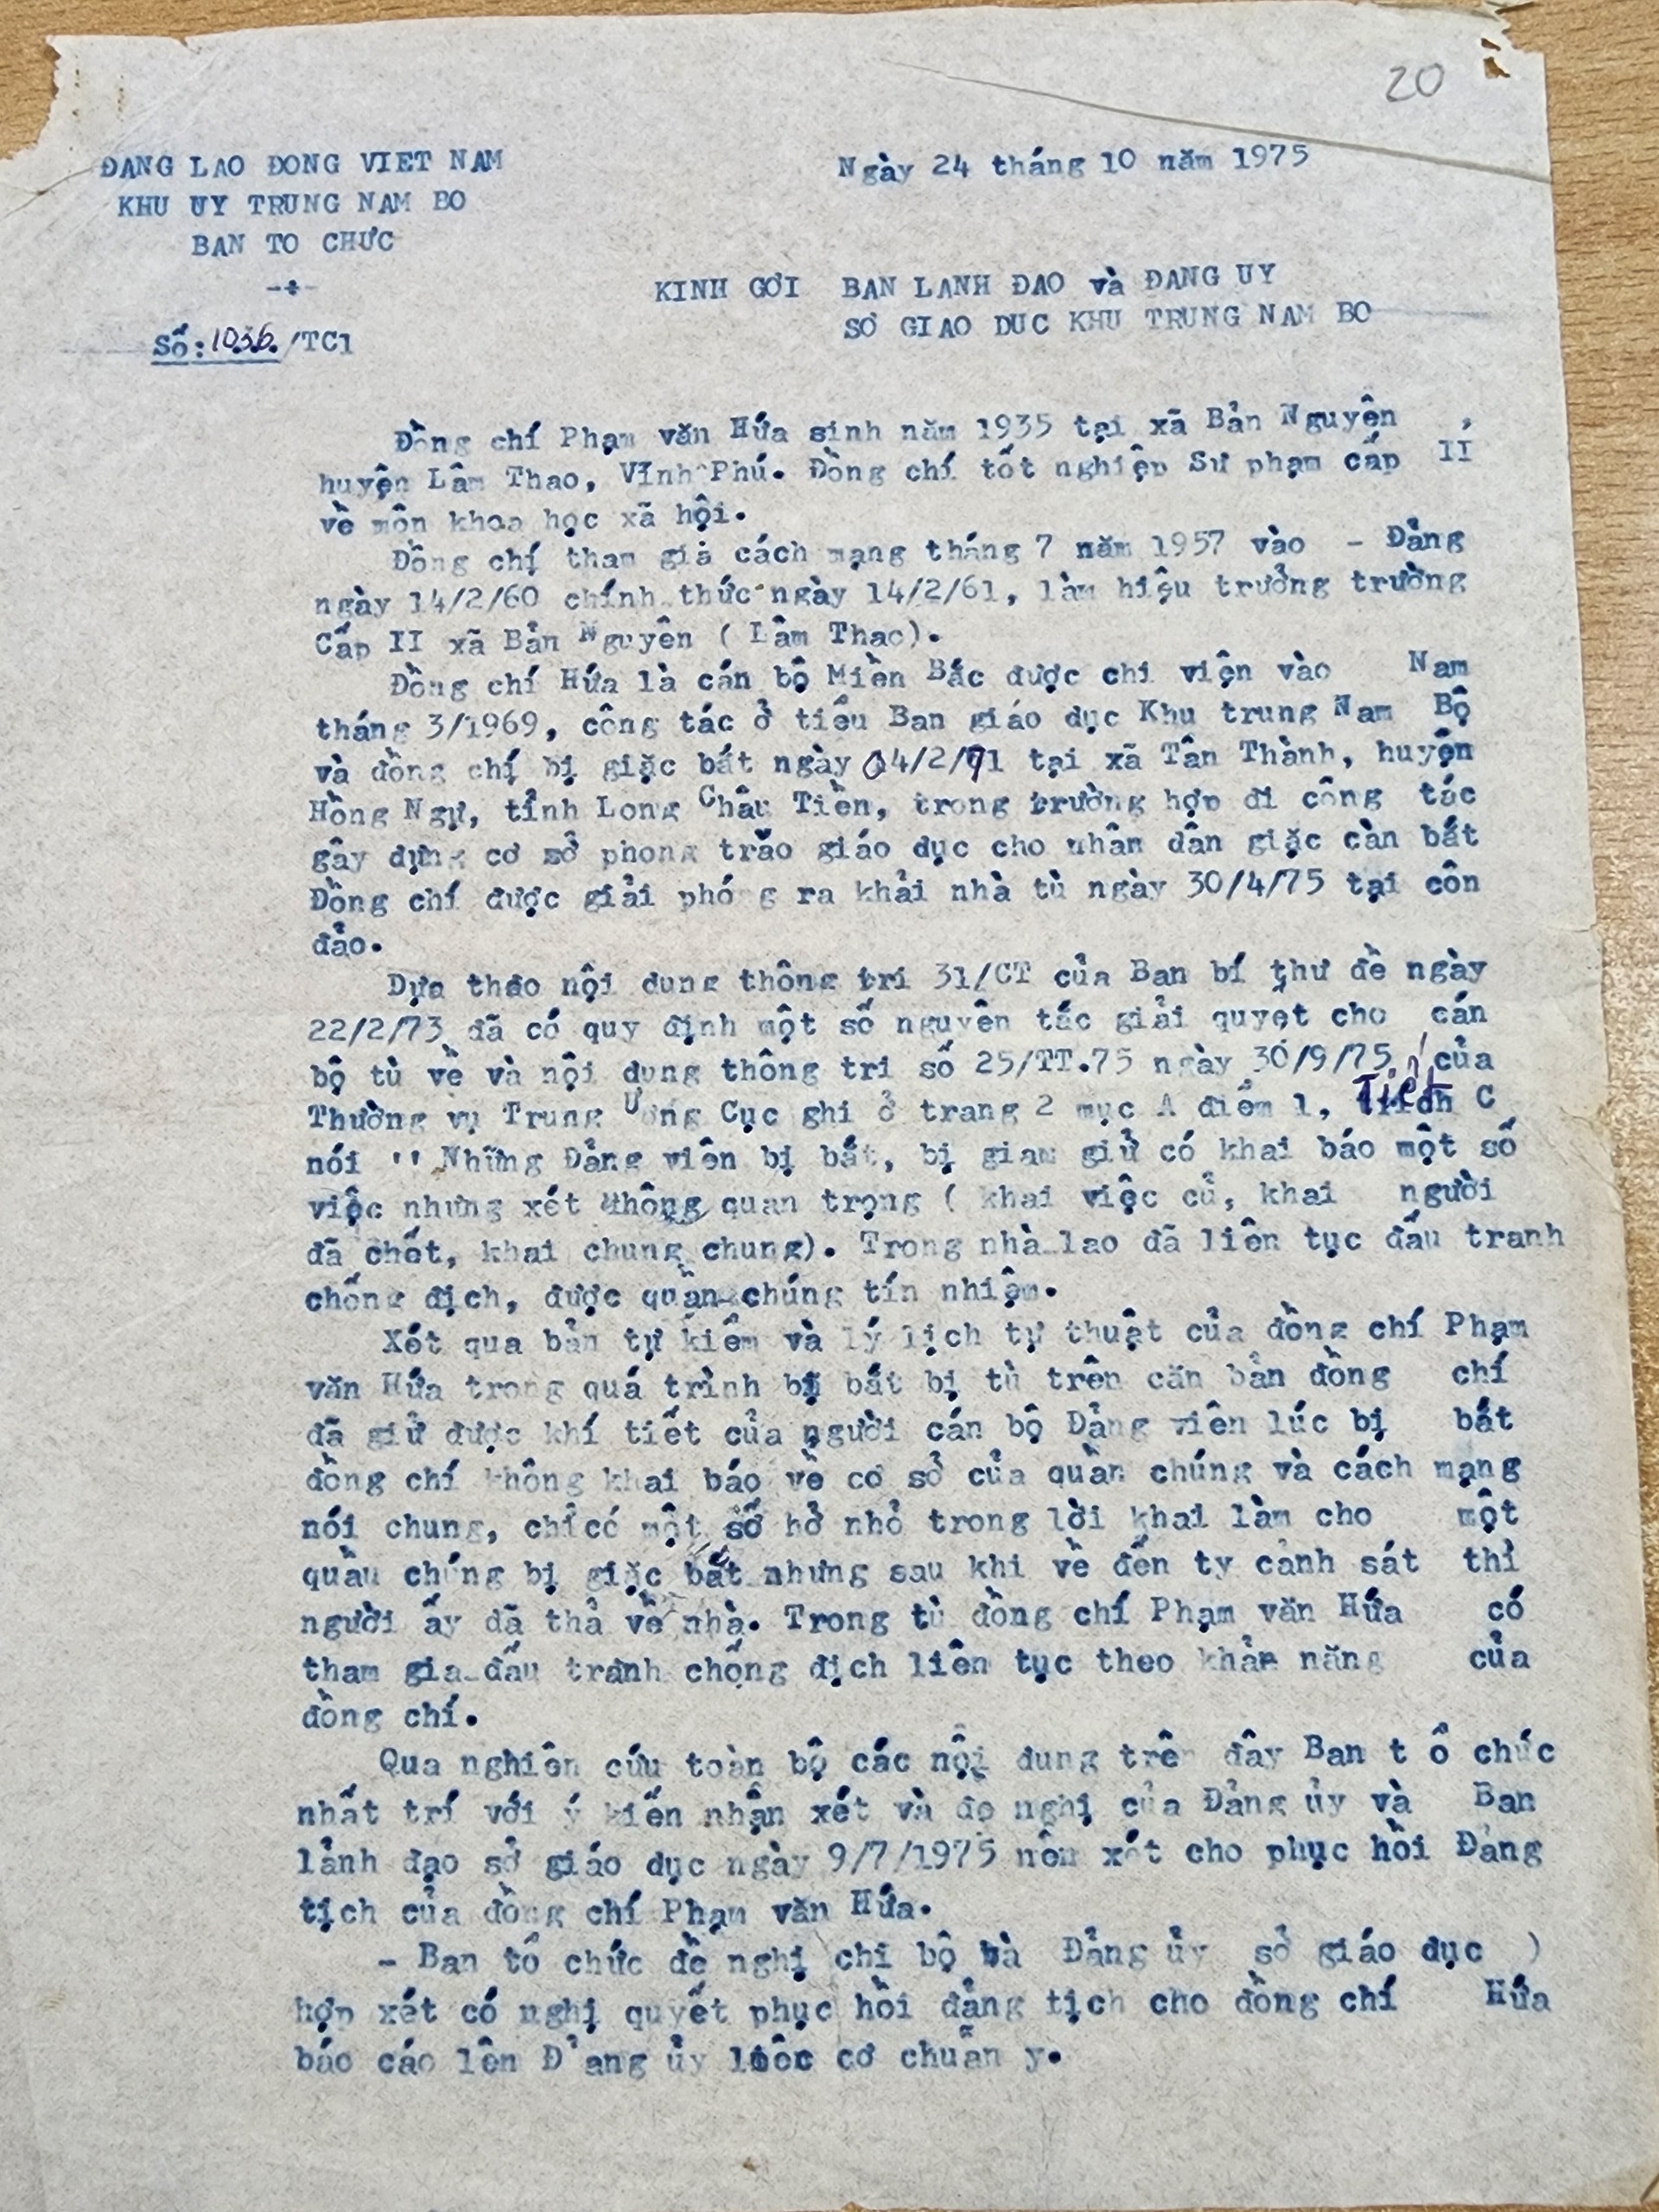 20
ĐANG LAO ĐONG VIET NAM
KHU UY TRUNG NAM BO
BAN TO CHƯC
-+-
Số: 1036./TC1
Ngày 24 tháng 10 năm 1975
KINH GƠI BAN LANH ĐAO và ĐANG UY
SƠ GIAO DUC KHU TRUNG NAM BO
Đồng chí Phạm văn Hứa sinh năm 1935 tại xã Bản Nguyên ,
huyện Lâm Thao, Vĩnh Phú. Đồng chí tốt nghiệp Sư phạm cấp II
về môn khoa học xã hội.
Đồng chí tham giả cách mạng tháng 7 năm 1957 vào - Đảng
ngày 14/2/60 chính thức ngày 14/2/61, làm hiệu trưởng trường
Cấp II xã Bản Nguyên ( Lâm Thao).
Đồng chí Hứa là cán bộ Miền Bắc được chi viện vào Nam
tháng 3/1969, công tác ở tiểu Ban giáo dục Khu trung Nam Bộ
và đồng chí bị giặc bắt ngày 04/2/71 tại xã Tân Thành, huyện
Hồng Ngự, tỉnh Long Châu Tiền, trong trường hợp đi công tác
gây dựng cơ sở phong trào giáo dục cho nhân dân giặc càn bắt
Đồng chí được giải phóng ra khải nhà tù ngày 30/4/75 tại côn
đảo.
Dựa theo nội dung thông tri 31/CT của Ban bí thư đề ngày
22/2/73 đã có quy định một số nguyên tắc giải quyết cho cán
bộ tù về và nội dung thông tri số 25/TT.75 ngày 30/9/75 của
Thường vụ Trung Ương Cục ghi ở trang 2 mục A điểm 1, Tiết C
nói '' Những Đảng viên bị bắt, bị giam giử có khai báo một số
việc nhưng xét không quan trọng ( khai việc củ, khai người
đã chết, khai chung chung). Trong nhà lao đã liên tục đấu tranh
chống địch, được quần chúng tín nhiệm.
Xét qua bản tự kiểm và lý lịch tự thuật của đồng chí Phạm
văn Hứa trong quá trình bị bắt bị tù trên căn bản đồng chí
đã giử được khí tiết của người cán bộ Đảng viên lúc bị bắt
đồng chí không khai báo về cơ sở của quần chúng và cách mạng
nói chung, chỉ có một số hở nhỏ trong lời khai làm cho một
quầu chúng bị giặc bắt nhưng sau khi về đến ty cảnh sát thì
người ấy dã thả về nhà. Trong tù đồng chí Phạm văn Hứa có
tham gia đấu tranh chống địch liên tục theo khản năng của
đồng chí.
Qua nghiên cứu toàn bộ các nội dung trên đây Ban t ổ chức
nhất trí với ý kiến nhận xét và đề nghị của Đảng ủy và Ban
lảnh đạo sở giáo dục ngày 9/7/1975 nên xét cho phục hồi Đảng
tịch của đồng chí Phạm văn Hứa.
- Ban tổ chức đề nghị chi bộ và Đảng ủy sở giáo dục )
hợp xét có nghị quyết phục hồi đảng tịch cho đồng chí Hứa
báo cáo lên Đ'ang ủy cơ chuẩn y.